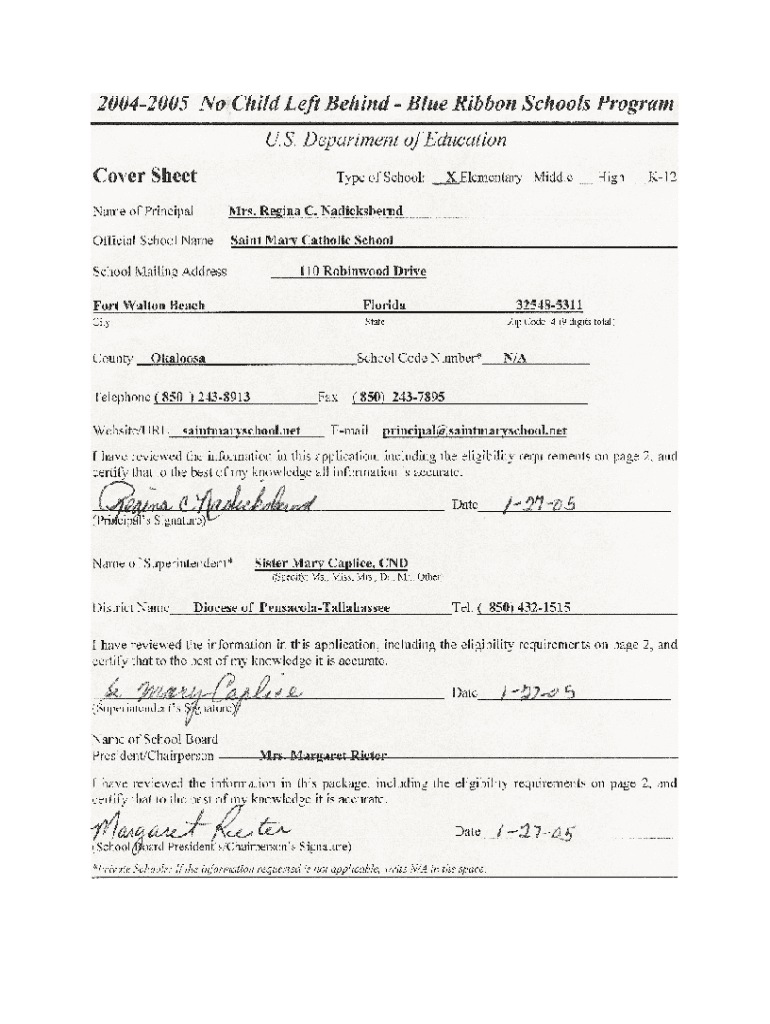 2004-2005 No Child Left Behind - Blue Ribbon Schools Program
U.S. Department of Education
Cover Sheet Type of School: X Elementary Middle High K-12
Name of Principal Mrs. Regina C. Nadicksbernd
Official School Name Saint Mary Catholic School
School Mailing Address 110 Robinwood Drive
Fort Walton Beach Florida 32548-5311
City State Zip Code 4 (9 digits total)
County Okaloosa School Code Number* N/A
Telephone ( 850 ) 243-8913 Fax ( 850) 243-7895
Website/URL saintmaryschool.net E-mail principal@saintmaryschool.net
I have reviewed the information in this application, including the eligibility requirements on page 2, and
certify that to the best of my knowledge all information is accurate.
Regina C Nadicksbernd Date 1-27-05
(Principal's Signature)
Name of Superintendent* Sister Mary Caplice, CND
(Specify: Ms., Miss, Mrs., Dr., Mr., Other
District Name Diocese of Pensacola-Tallahassee Tel. ( 850) 432-1515
I have reviewed the information in this application, including the eligibility requirements on page 2, and
certify that to the best of my knowledge it is accurate.
Sr. Mary Caplice Date 1-27-05
(Superintendent's Signature)
Name of School Board
President/Chairperson Mrs. Margaret Rieter
I have reviewed the information in this package, including the eligibility requirements on page 2, and
certify that to the best of my knowledge it is accurate.
Margaret Riester Date 1-27-05
(School Board President's/Chairperson's Signature)
*Private Schools: If the information requested is not applicable, write N/A in the space.